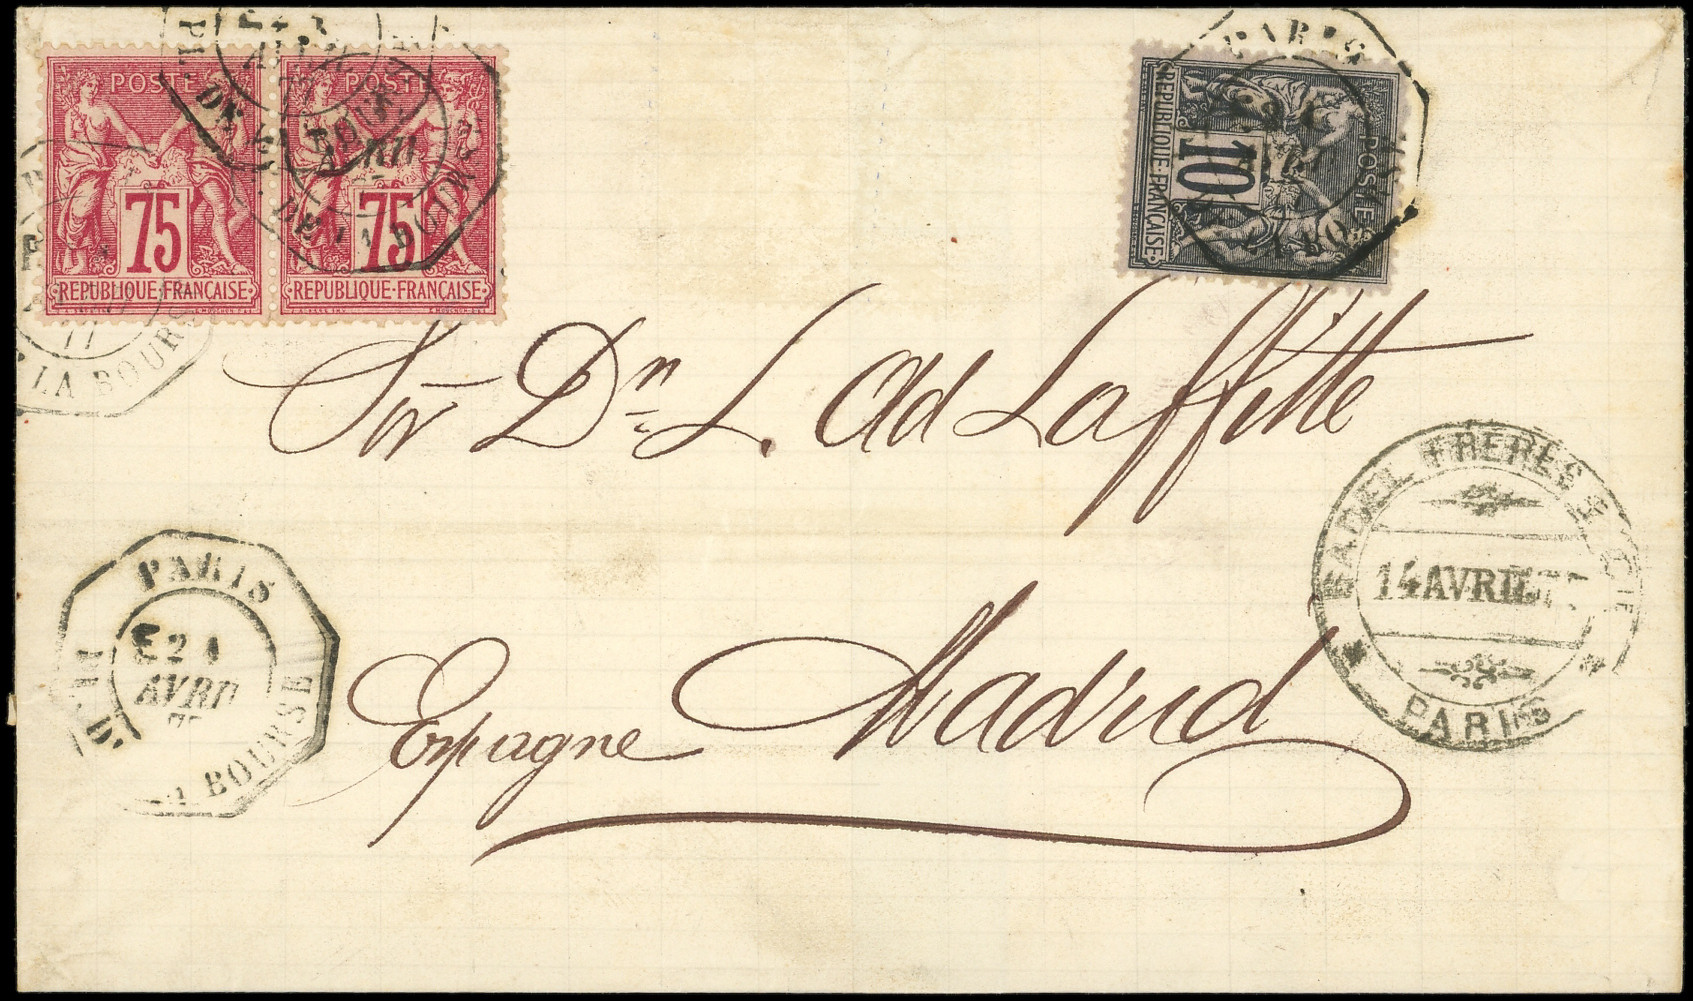 POSTE
75
REPUBLIQUE·FRANÇAISE
POSTE
75
REPUBLIQUE·FRANÇAISE
POSTE
10
REPUBLIQUE·FRANÇAISE
PARIS
AVRIL
LA BOURSE
77
Sor Dn L. Ad Laffitte
Espagne Madrid
PARIS
E2
AVRIL
BOURSE
FRERES & CIE
14 AVRIL 77
PARIS